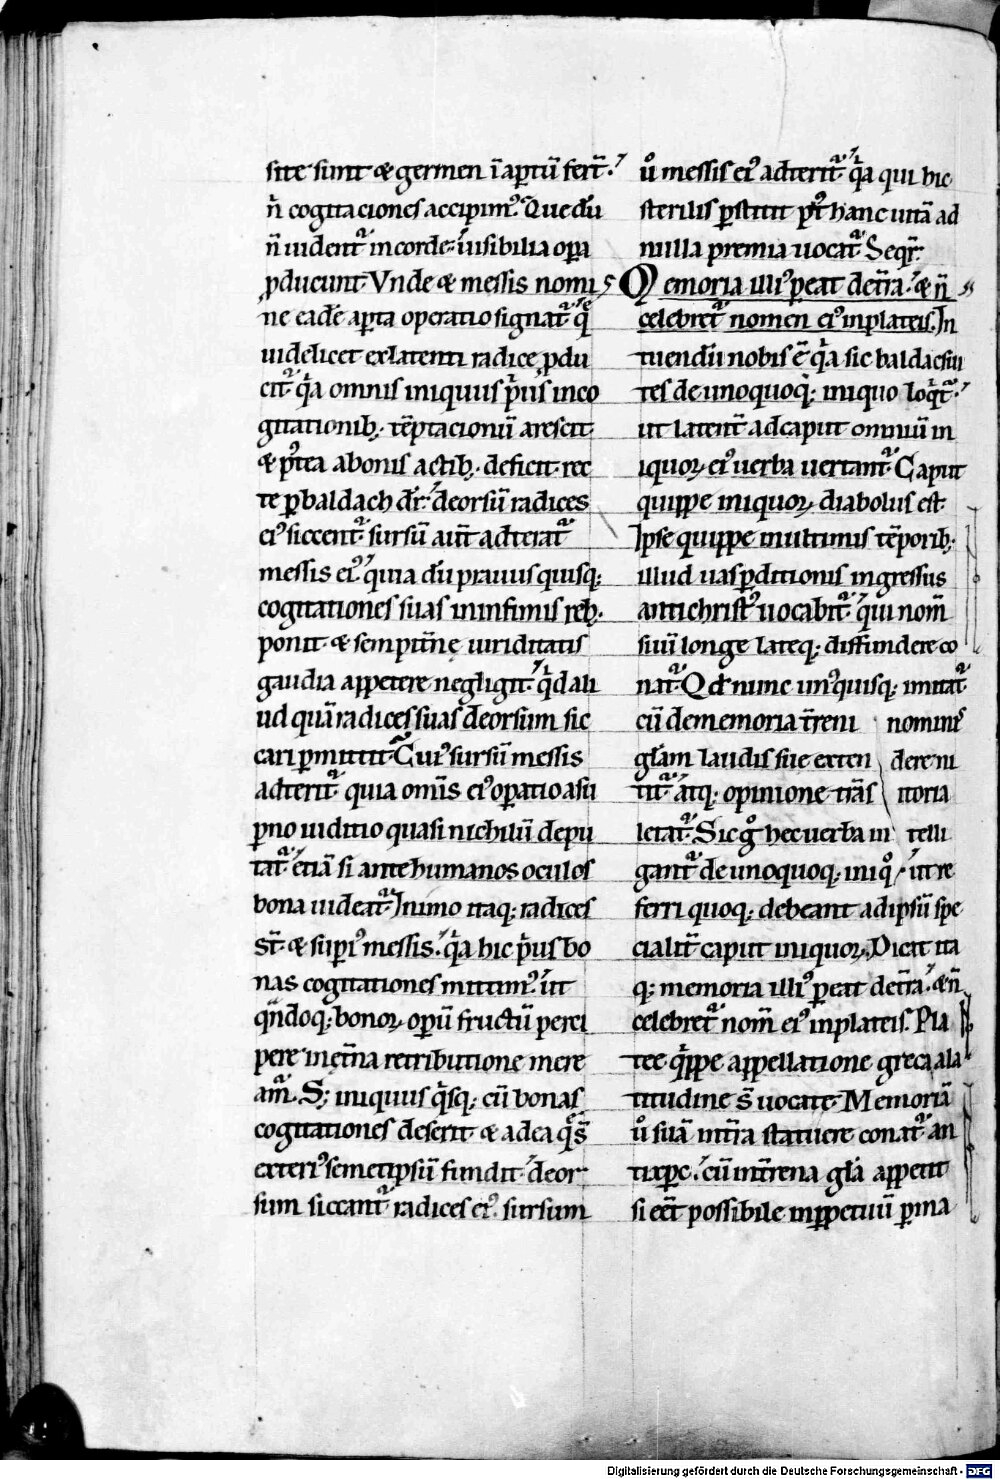 site sunt & germen i apertū fert̄.
n̄ cogitaciones accipim᷒. Que dū
n̄ uident᷑ in corde. īuisibilia oꝑa
ꝓducunt. Vnde & messis nomi
ne eadē aꝑta operatio signat᷑. q̄
uidelicet ex latenti radice ꝓdu
cit᷑. q̇a omnis iniquus ṗus in co
gitationib; tēptacionū arescit.
& p᷒tea a bonis actib; deficit. rec
te ꝑ baldach dr̄. deorsū radices
ei᷒ siccent᷑. sursū aut̄ adterat᷑
messis ei᷒. quia dū prauus quisq;
cogitationes suas in infimis reb;
ponit. & sempit̄nę uiriditatis
gaudia appetere negligit. q̇d ali
ud quā radices suas deorsum sic
cari ꝑmittit. Cui᷒ sursū messis
adterit᷑. quia om̄is ei᷒ oꝑatio a su
ꝑno iuditio quasi nichilū depu
tat᷑. etiā si ante humanos oculos
bona uideat᷑. In imo itaq; radices
st̄. & suꝑi᷒ messis. q̇a hic ṗus bo
nas cogitationes mittim᷒. ut
qn̄doq; bonoꝝ oꝑū fructū perci
pere in et̄na retributione mere
am᷑. S; iniquus q̇sq; cū bonas
cogitationes deserit. & ad ea q̄ s̄
exteri᷒ semetipsū fundit. deor
sum siccant᷑ radices ei᷒. sursum
ů messis ei᷒ adterit᷑. q̇a qui hic
sterilis ꝑstitit p᷒t hanc uitā ad
nulla premia uocat᷑. Seqr̄.
Memoria illi᷒ ꝑeat de t̄ra. & n̄
celebret᷑ nomen ei᷒ in plateis. In
tuendū nobis ē q̇a sic baldac sui
tes de unoquoq; iniquo loq̇t᷑.
ut latent̄ ad caput omniū in
iquoꝝ ei᷒ uerba uertant᷑. Caput
quippe iniquoꝝ diabolus est.
Ipse quippe in ultimis tēporib;
illud uas ꝑditionis ingressus
antichrist᷒ uocabit᷑. qui nom̄
suū longe lateq; diffundere co
nat᷑. Qd̄ nunc un᷒quisq; imitat᷑
cū de memoria t̄reni nominis
glām laudis sue exten dere ni
tit᷑. atq; opinione trās itoria
letat᷑. Sic g̊ hec uerba in telli
gant᷑ de unoquoq; iniq̊. ut re
ferri quoq; debeant ad ipsū spe
cialit̄ caput iniquoꝝ. Dicit ita
q; memoria illi᷒ ꝑeat de t̄ra. & n̄
celebret᷑ nom̄ ei᷒ in plateis. Pla
tee q̇ppe appellatione greca a la
titudine s̄ uocate. Memoriā
ů suā in t̄ra statuere conat᷑ an
tixpc̄. cū in t̄rena glā appetit
si eēt possibile in ꝑpetuū ꝑma
Digitalisierung gefördert durch die Deutsche Forschungsgemeinschaft - DFG